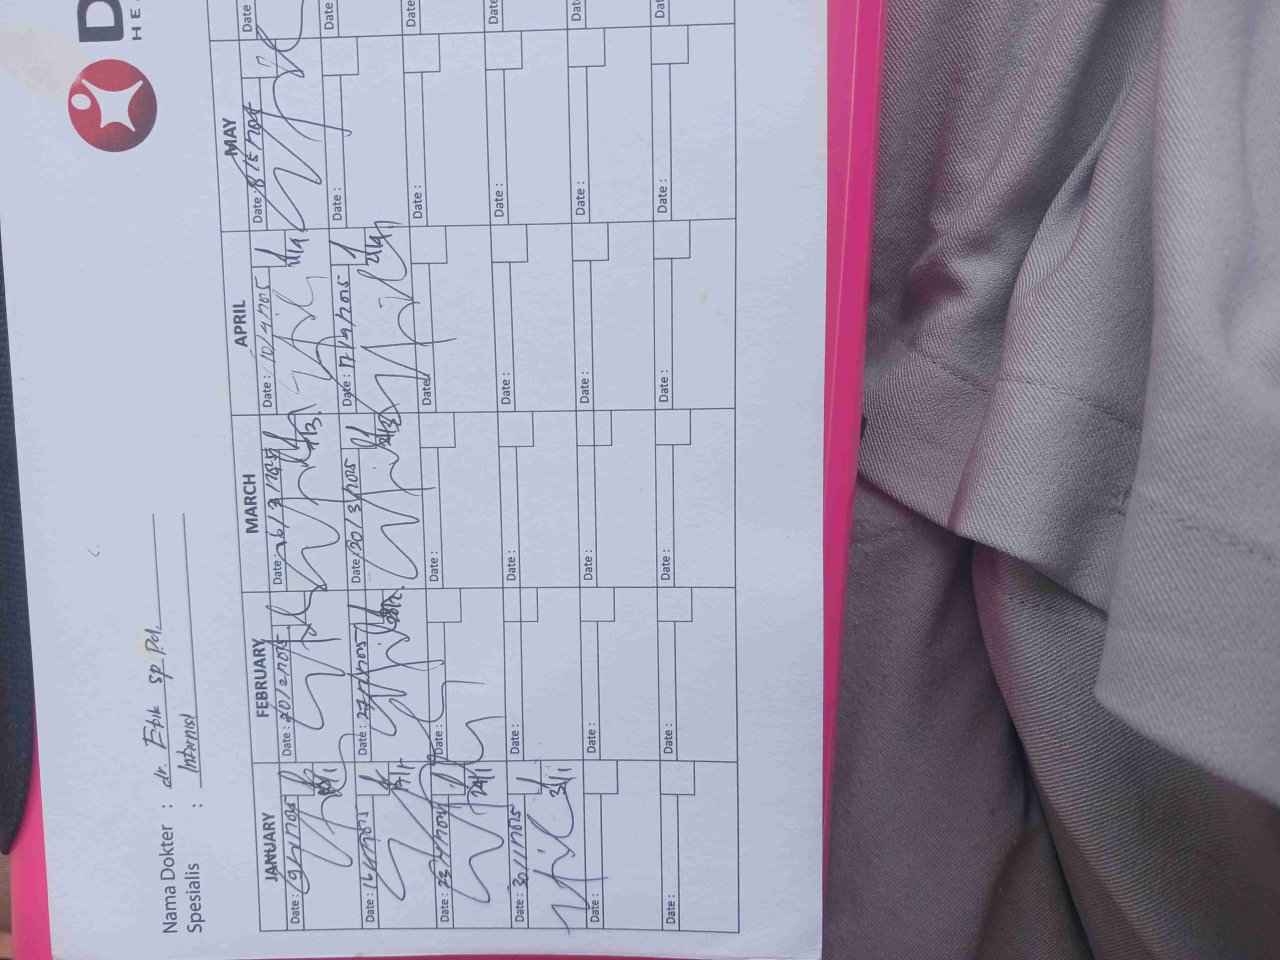 D
HE
Nama Dokter : dr. Erik sp Pd.
Spesialis : Internist
JANUARY FEBRUARY MARCH APRIL MAY
Date : 9/1/2025 Date : 20/2/2025 Date : 6/3/2025 Date : 10/4/2025 Date : 8/5/2025 Date
7/3. 11/4
Date : 16/1/2025 Date : 27/2/2025 Date : 20/3/2025 Date : 17/4/2025 Date : Date
17/1 28/2. 21/3 21/4
Date : 23/1/2025 Date : Date : Date Date : Date
24/1
Date : 30/1/2025 Date : Date : Date : Date : Date
31/1
Date : Date : Date : Date : Date : Dat
Date : Date : Date : Date : Date : Dat